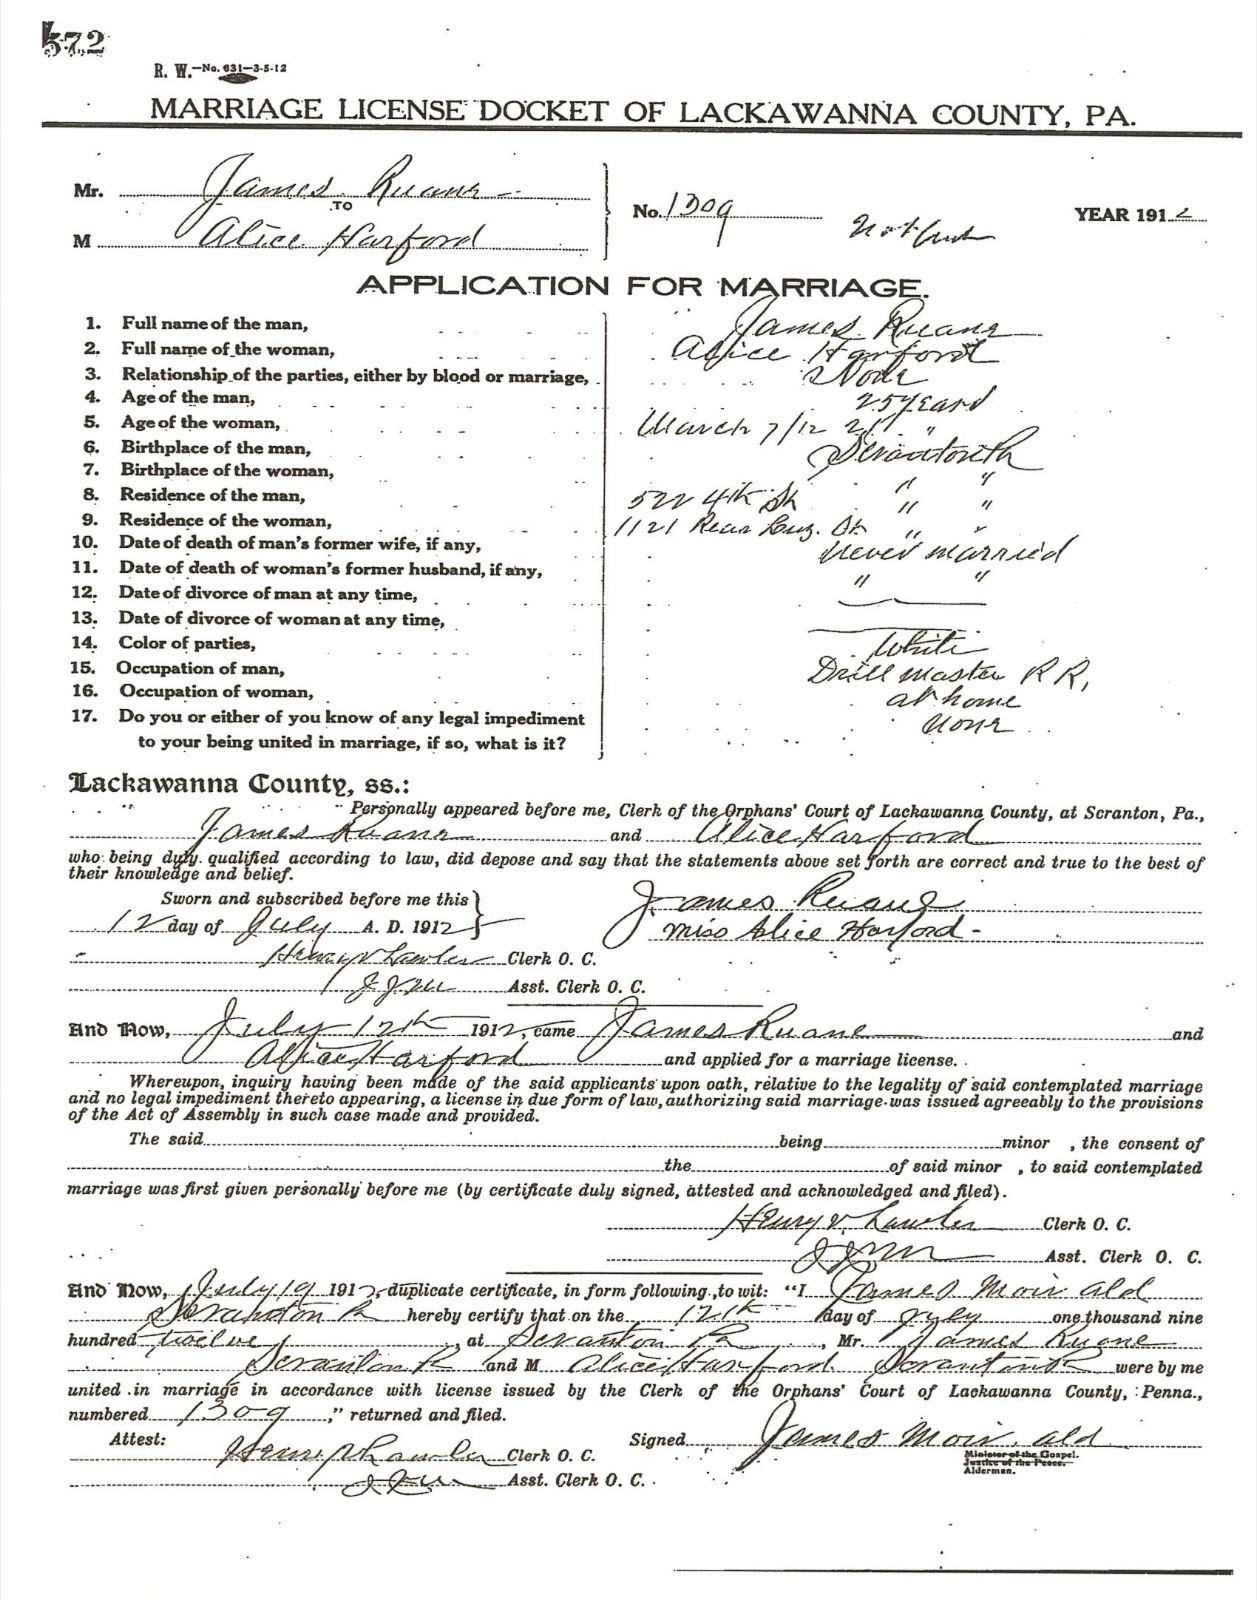 572
R. W.—No. 631—3-5-12
MARRIAGE LICENSE DOCKET OF LACKAWANNA COUNTY, PA.
Mr. James Ruane
TO
M Alice Harford
No. 1309
YEAR 1912
APPLICATION FOR MARRIAGE.
1. Full name of the man, James Ruane
2. Full name of the woman, Alice Harford
3. Relationship of the parties, either by blood or marriage, None
4. Age of the man, 25 years
5. Age of the woman, March 7/12 21 "
6. Birthplace of the man, Scranton Pa
7. Birthplace of the woman, " "
8. Residence of the man, 522 4th St " "
9. Residence of the woman, 1121 Rear Luz. St. " "
10. Date of death of man's former wife, if any, never married
11. Date of death of woman's former husband, if any, " "
12. Date of divorce of man at any time,
13. Date of divorce of woman at any time,
14. Color of parties, White
15. Occupation of man, Drill master R R,
16. Occupation of woman, at home
17. Do you or either of you know of any legal impediment
to your being united in marriage, if so, what is it? None
Lackawanna County, ss.:
Personally appeared before me, Clerk of the Orphans' Court of Lackawanna County, at Scranton, Pa.,
James Ruane and Alice Harford
who being duly qualified according to law, did depose and say that the statements above set forth are correct and true to the best of
their knowledge and belief.
Sworn and subscribed before me this
12 day of July A. D. 1912
James Ruane
Miss Alice Harford
Henry V Lawler Clerk O. C.
Asst. Clerk O. C.
And Now, July 12th 1912, came James Ruane and
Alice Harford and applied for a marriage license.
Whereupon, inquiry having been made of the said applicants upon oath, relative to the legality of said contemplated marriage
and no legal impediment thereto appearing, a license in due form of law, authorizing said marriage was issued agreeably to the provisions
of the Act of Assembly in such case made and provided.
The said being minor , the consent of
the of said minor , to said contemplated
marriage was first given personally before me (by certificate duly signed, attested and acknowledged and filed).
Henry V. Lawler Clerk O. C.
Asst. Clerk O. C.
And Now, July 19 1912, duplicate certificate, in form following, to wit: "I James Moir ald
Scranton Pa hereby certify that on the 12th day of July one thousand nine
hundred twelve, at Scranton Pa, Mr. James Ruane
Scranton Pa and M Alice Harford Scranton Pa were by me
united in marriage in accordance with license issued by the Clerk of the Orphans' Court of Lackawanna County, Penna.,
numbered 1309," returned and filed.
Attest:
Henry V Lawler Clerk O. C.
Asst. Clerk O. C.
Signed James Moir, ald
Minister of the Gospel.
Justice of the Peace.
Alderman.